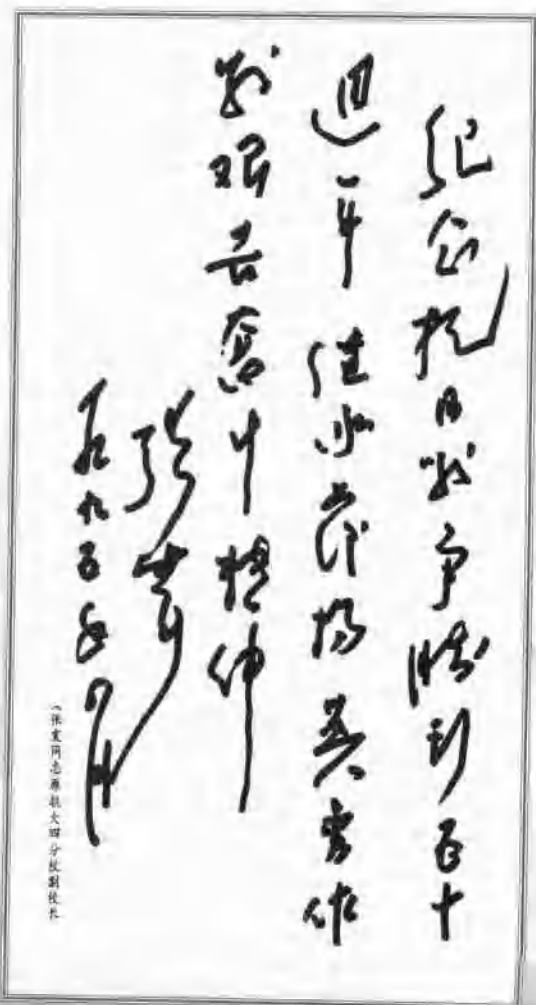 纪念抗日战争胜利五十
週年继承发扬英勇作
战艰苦奋斗精神
张震
一九九五年
（张震同志原抗大四分校副校长